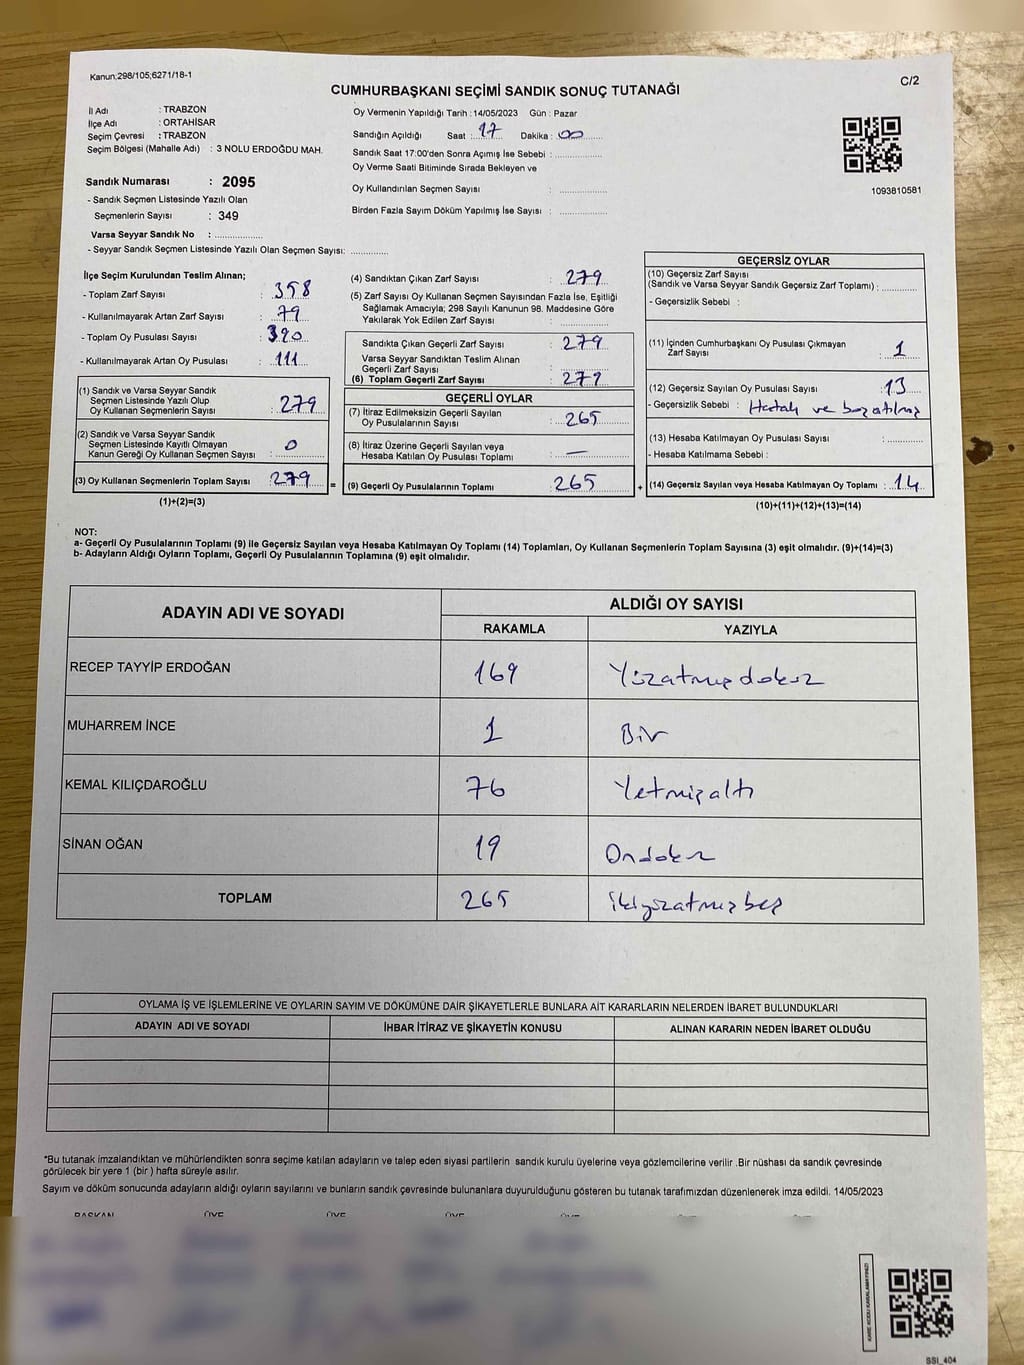 Kanun;298/105;6271/18-1
C/2
CUMHURBAŞKANI SEÇİMİ SANDIK SONUÇ TUTANAĞI
İl Adı : TRABZON
İlçe Adı : ORTAHİSAR
Seçim Çevresi : TRABZON
Seçim Bölgesi (Mahalle Adı) : 3 NOLU ERDOĞDU MAH.
Sandık Numarası : 2095
- Sandık Seçmen Listesinde Yazılı Olan
Seçmenlerin Sayısı : 349
Varsa Seyyar Sandık No : ................
- Seyyar Sandık Seçmen Listesinde Yazılı Olan Seçmen Sayısı: .............
Oy Vermenin Yapıldığı Tarih : 14/05/2023 Gün : Pazar
Sandığın Açıldığı Saat : 17 Dakika : 00
Sandık Saat 17:00'den Sonra Açımış İse Sebebi : ................
Oy Verme Saati Bitiminde Sırada Bekleyen ve
Oy Kullandırılan Seçmen Sayısı : ................
Birden Fazla Sayım Döküm Yapılmış İse Sayısı : ................
1093810581
İlçe Seçim Kurulundan Teslim Alınan;
- Toplam Zarf Sayısı : 358
- Kullanılmayarak Artan Zarf Sayısı : 79
- Toplam Oy Pusulası Sayısı : 390
- Kullanılmayarak Artan Oy Pusulası : 111
(1) Sandık ve Varsa Seyyar Sandık
Seçmen Listesinde Yazılı Olup
Oy Kullanan Seçmenlerin Sayısı : 279
(2) Sandık ve Varsa Seyyar Sandık
Seçmen Listesinde Kayıtlı Olmayan
Kanun Gereği Oy Kullanan Seçmen Sayısı : 0
(3) Oy Kullanan Seçmenlerin Toplam Sayısı : 279
(1)+(2)=(3)
=
(4) Sandıktan Çıkan Zarf Sayısı : 279
(5) Zarf Sayısı Oy Kullanan Seçmen Sayısından Fazla İse, Eşitliği
Sağlamak Amacıyla; 298 Sayılı Kanunun 98. Maddesine Göre
Yakılarak Yok Edilen Zarf Sayısı : ................
Sandıkta Çıkan Geçerli Zarf Sayısı : 279
Varsa Seyyar Sandıktan Teslim Alınan
Geçerli Zarf Sayısı : ................
(6) Toplam Geçerli Zarf Sayısı : 279
GEÇERLİ OYLAR
(7) İtiraz Edilmeksizin Geçerli Sayılan
Oy Pusulalarının Sayısı : 265
(8) İtiraz Üzerine Geçerli Sayılan veya
Hesaba Katılan Oy Pusulası Toplamı : —
(9) Geçerli Oy Pusulalarının Toplamı : 265
+
GEÇERSİZ OYLAR
(10) Geçersiz Zarf Sayısı
(Sandık ve Varsa Seyyar Sandık Geçersiz Zarf Toplamı) : ............
- Geçersizlik Sebebi :
(11) İçinden Cumhurbaşkanı Oy Pusulası Çıkmayan
Zarf Sayısı : 1
(12) Geçersiz Sayılan Oy Pusulası Sayısı : 13
- Geçersizlik Sebebi : Hatalı ve
(13) Hesaba Katılmayan Oy Pusulası Sayısı : ............
- Hesaba Katılmama Sebebi :
(14) Geçersiz Sayılan veya Hesaba Katılmayan Oy Toplamı : 14
(10)+(11)+(12)+(13)=(14)
NOT:
a- Geçerli Oy Pusulalarının Toplamı (9) ile Geçersiz Sayılan veya Hesaba Katılmayan Oy Toplamı (14) Toplamları, Oy Kullanan Seçmenlerin Toplam Sayısına (3) eşit olmalıdır. (9)+(14)=(3)
b- Adayların Aldığı Oyların Toplamı, Geçerli Oy Pusulalarının Toplamına (9) eşit olmalıdır.
ADAYIN ADI VE SOYADI ALDIĞI OY SAYISI
RAKAMLA YAZIYLA
RECEP TAYYİP ERDOĞAN 169 Yüzatmışdokuz
MUHARREM İNCE 1 Bir
KEMAL KILIÇDAROĞLU 76 Yetmişaltı
SİNAN OĞAN 19 Ondokuz
TOPLAM 265 ikiyüzatmışbeş
OYLAMA İŞ VE İŞLEMLERİNE VE OYLARIN SAYIM VE DÖKÜMÜNE DAİR ŞİKAYETLERLE BUNLARA AİT KARARLARIN NELERDEN İBARET BULUNDUKLARI
ADAYIN ADI VE SOYADI İHBAR İTİRAZ VE ŞİKAYETİN KONUSU ALINAN KARARIN NEDEN İBARET OLDUĞU
*Bu tutanak imzalandıktan ve mühürlendikten sonra seçime katılan adayların ve talep eden siyasi partilerin sandık kurulu üyelerine veya gözlemcilerine verilir .Bir nüshası da sandık çevresinde
görülecek bir yere 1 (bir ) hafta süreyle asılır.
Sayım ve döküm sonucunda adayların aldığı oyların sayılarını ve bunların sandık çevresinde bulunanlara duyurulduğunu gösteren bu tutanak tarafımızdan düzenlenerek imza edildi. 14/05/2023
BAŞKAN ÜYE ÜYE ÜYE
KARE KODU KARALAMAYINIZ!
SSI_404